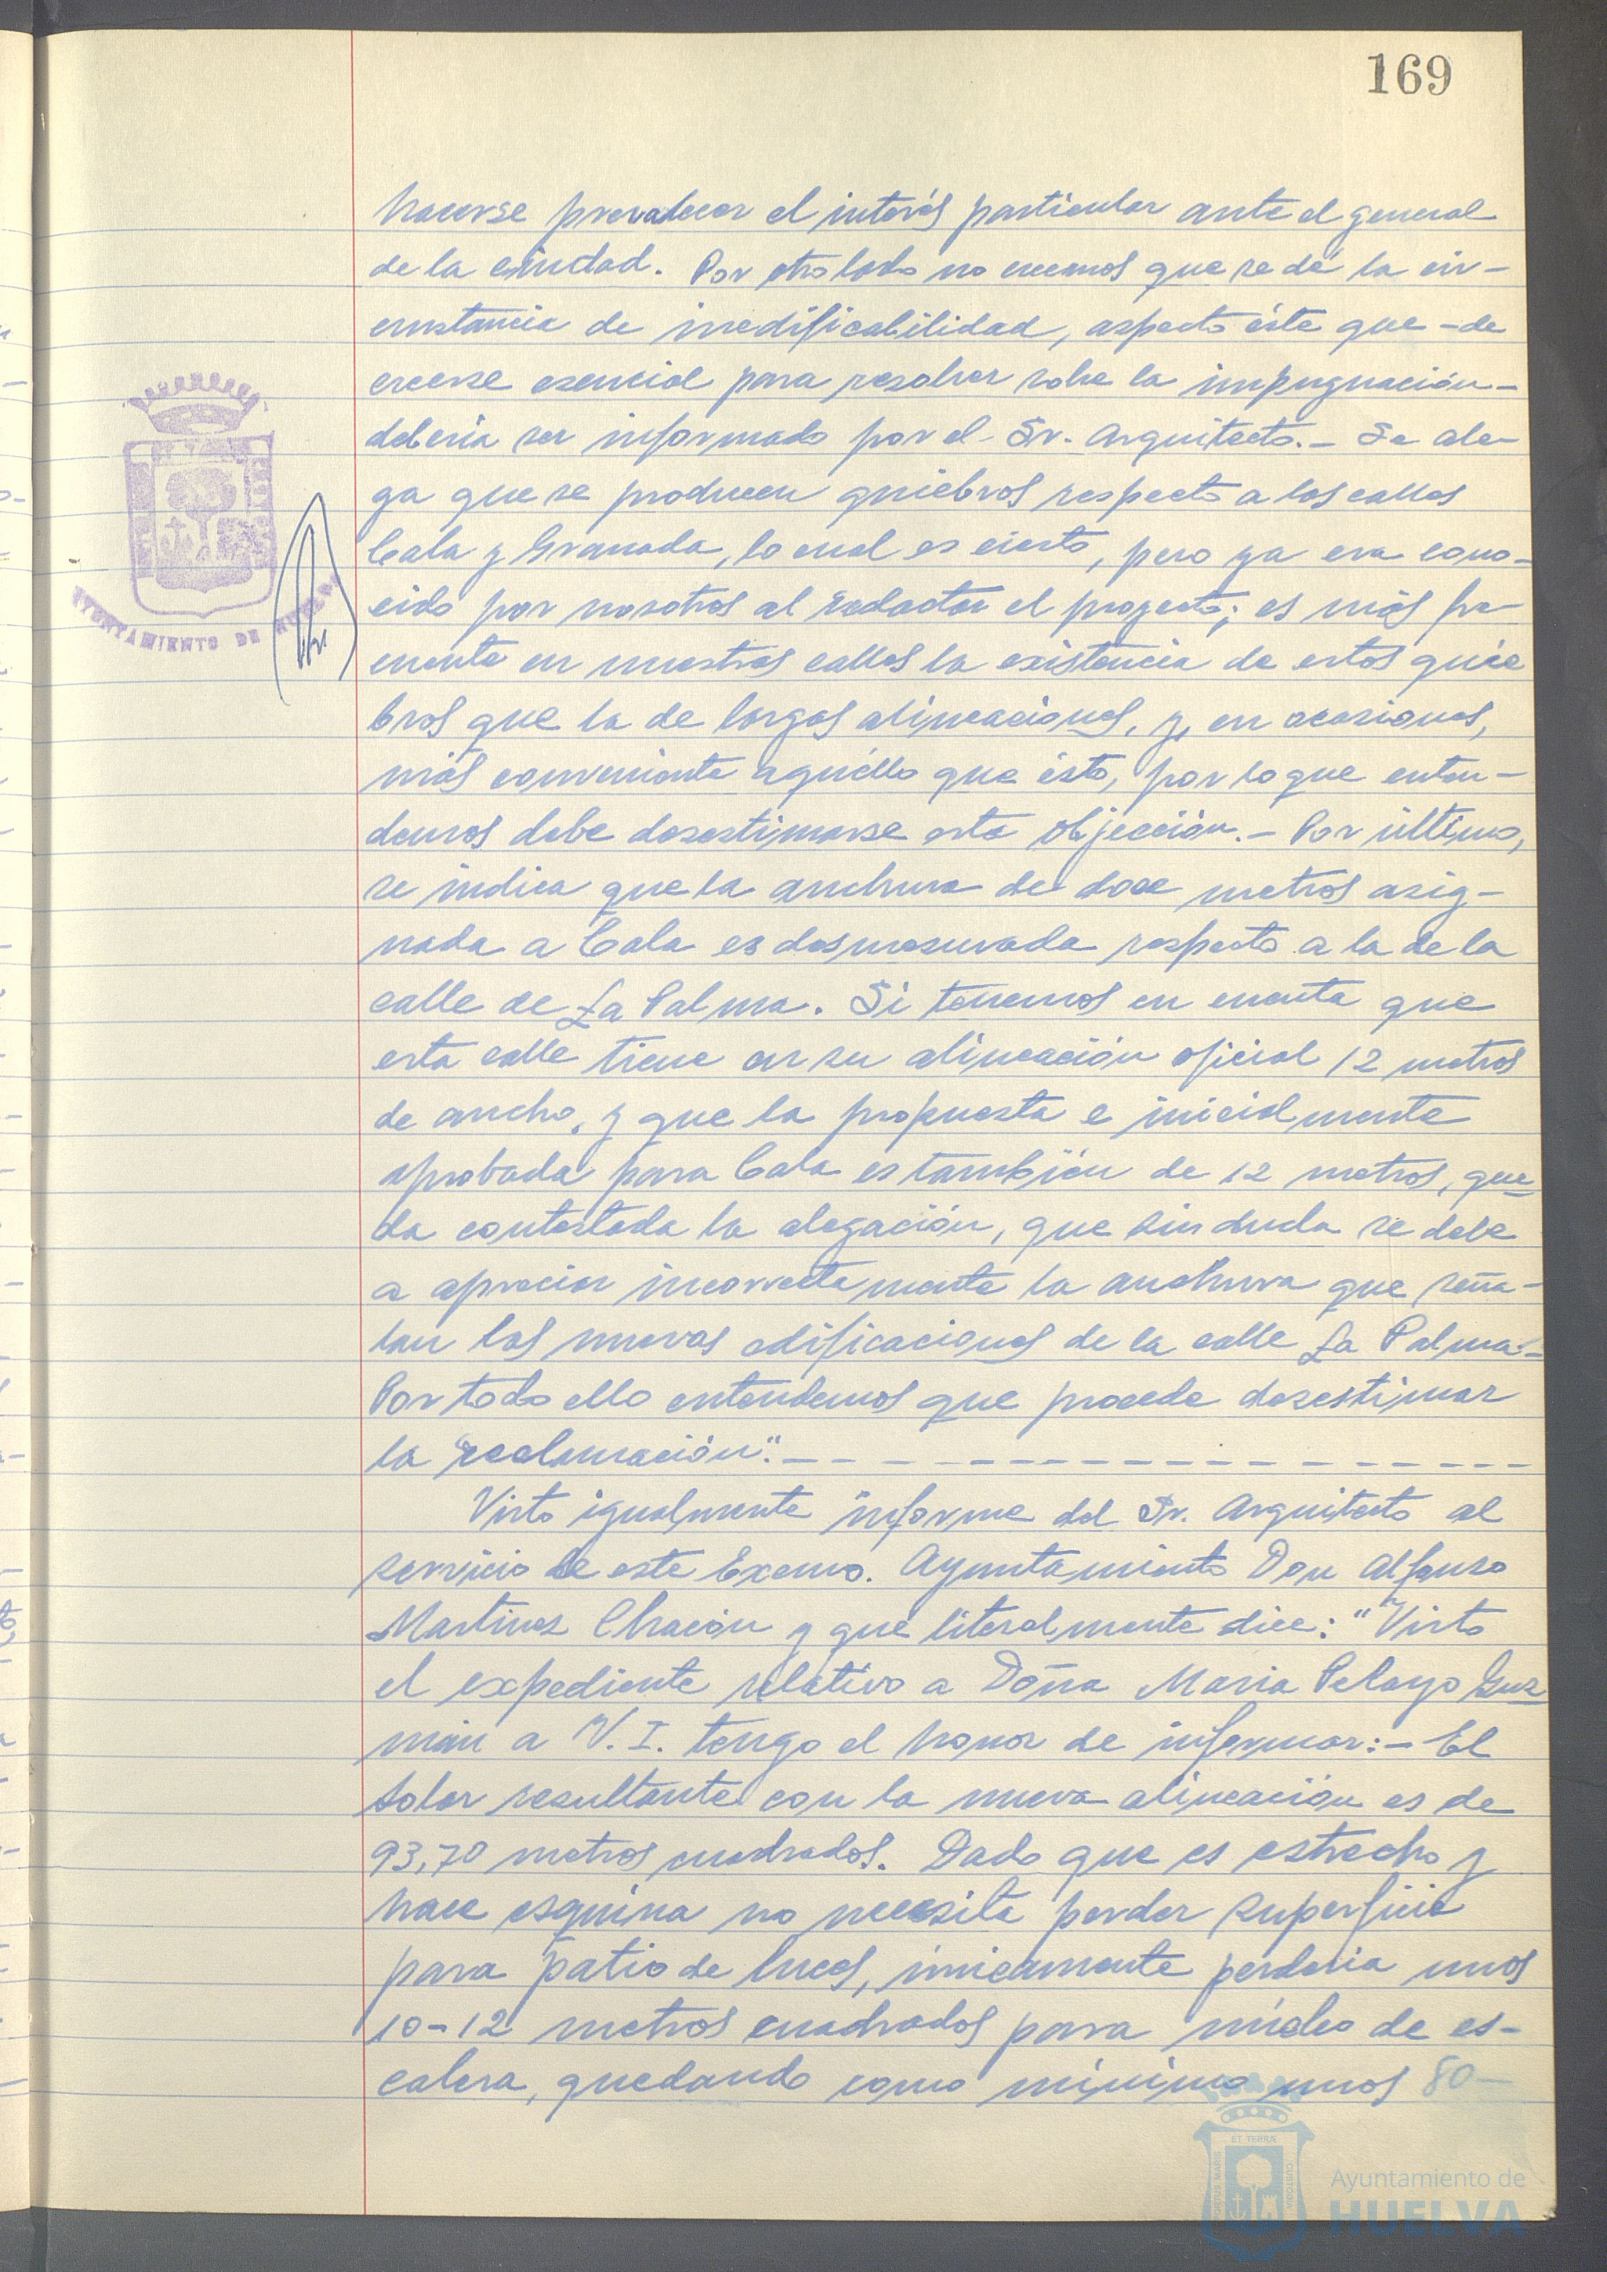 169
hacerse prevalecer el interés particular ante el general
de la ciudad. Por otro lado no creemos que se dé la cir-
cunstancia de inedificabilidad, aspecto éste que -de
creerse esencial para resolver sobre la impugnación-
debería ser informado por el Sr. Arquitecto.- Se ale-
ga que se producen quiebros respecto a las calles
Cala y Granada, lo cual es cierto, pero ya era cono-
cido por nosotros al redactar el proyecto; es más fre-
cuente en nuestras calles la existencia de estos quie
bros que la de largas alineaciones, y, en ocasiones,
más conveniente aquéllo que ésto, por lo que enten-
demos debe desestimarse esta objección.- Por último,
se indica que la anchura de doce metros asig-
nada a Cala es desmesurada respecto a la de la
calle de La Palma. Si tenemos en cuenta que
esta calle tiene en su alineación oficial 12 metros
de ancho, y que la propuesta e inicialmente
aprobada para Cala es también de 12 metros, que-
da contestada la alegación, que sin duda se debe
a apreciar incorrectamente la anchura que seña-
lan las nuevas edificaciones de la calle La Palma.-
Por todo ello entendemos que procede desestimar
la reclamación".- - - - - - - - - - - - - - - - - - -
Visto igualmente informe del Sr. Arquitecto al
servicio de este Excmo. Ayuntamiento Don Alfonso
Martinez Chacón y que literalmente dice: "Visto
el expediente relativo a Doña Maria Pelayo Guz
mán a V. I. tengo el honor de informar:- El
solar resultante con la nueva alineación es de
93,70 metros cuadrados. Dado que es estrecho y
hace esquina no necesita perder superficie
para patio de luces, únicamente perdería unos
10-12 metros cuadrados para núcleo de es-
calera, quedando como mínimo unos 80-
AYUNTAMIENTO DE HUELVA
Ayuntamiento de
HUELVA